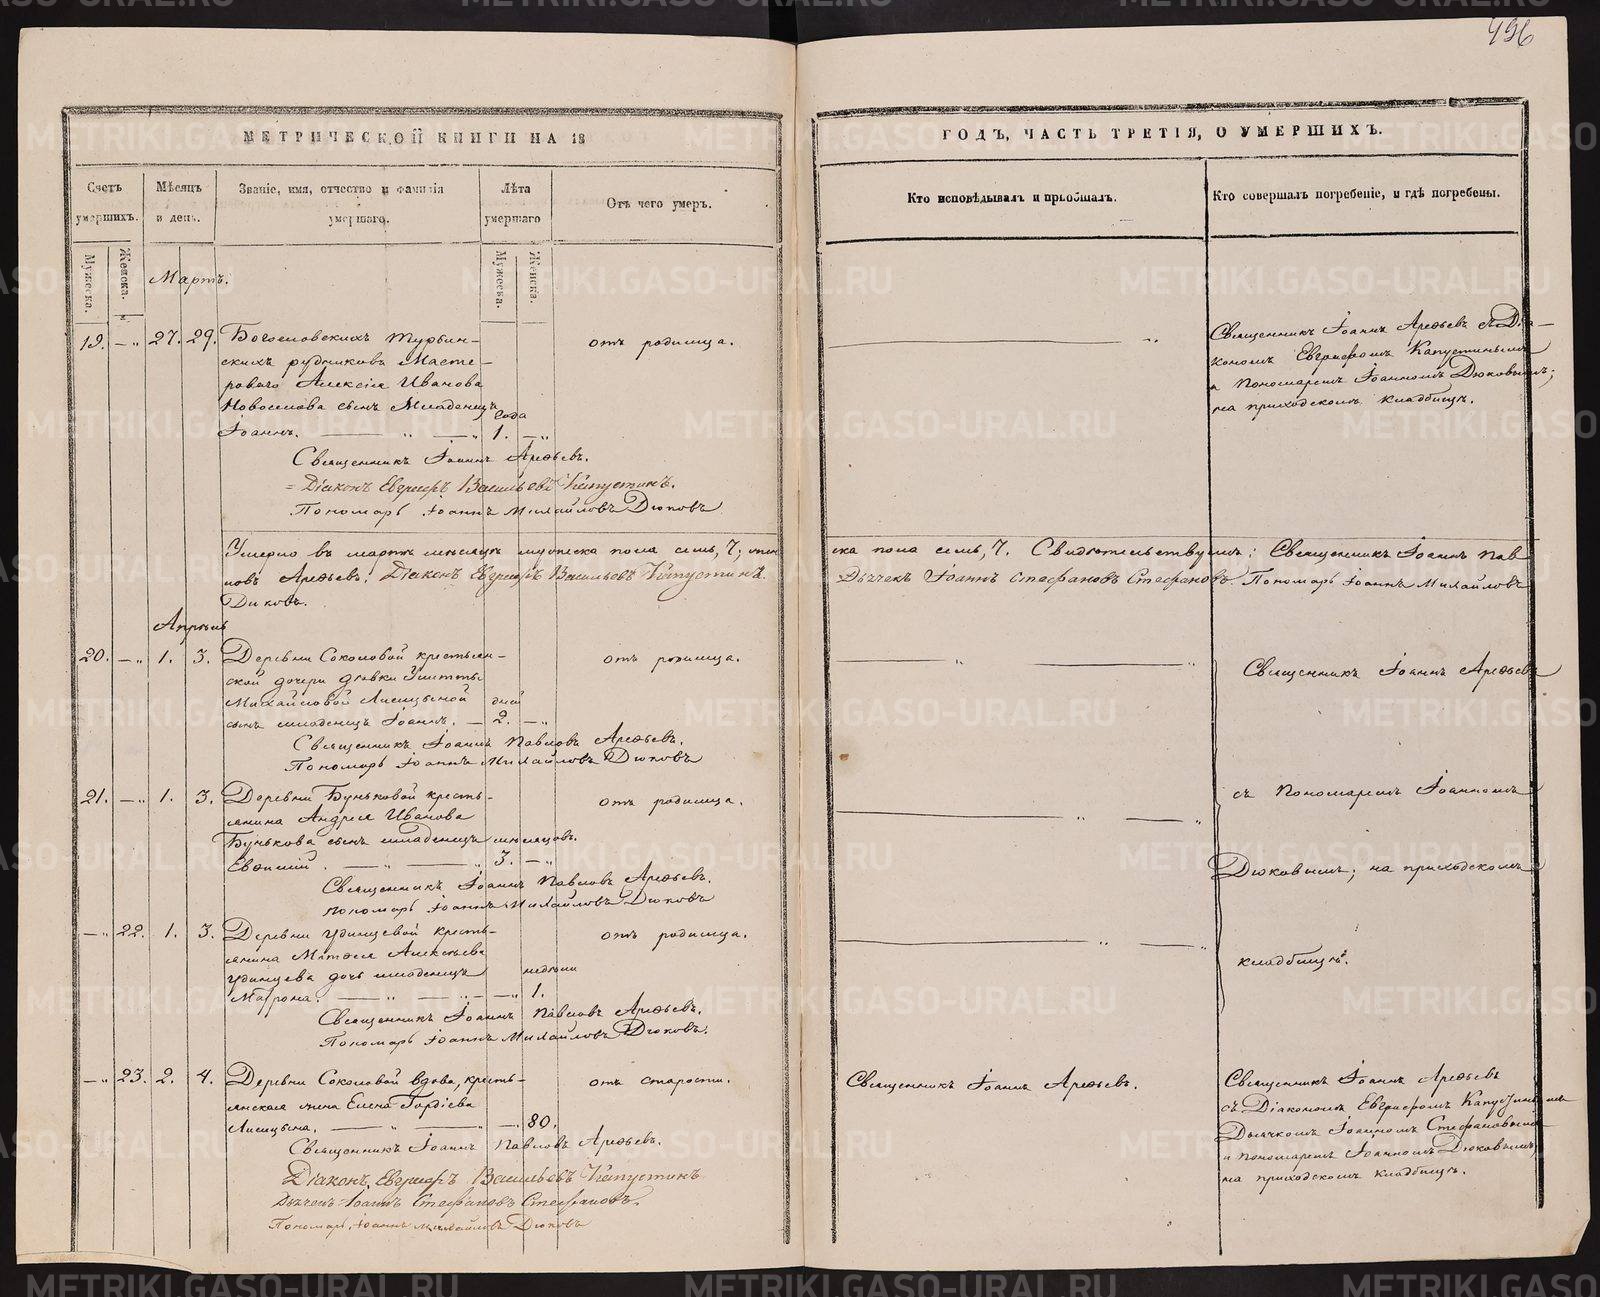 496
МЕТРИЧЕСКОЙ КНИГИ НА 18
ГОДЪ, ЧАСТЬ ТРЕТІЯ, О УМЕРШИХЪ.
Счетъ умершихъ.
Мѣсяцъ и день.
Званіе, имя, отчество и фамилія умершаго.
Лѣта умершаго
Отъ чего умеръ.
Кто исповѣдывалъ и пріобщалъ.
Кто совершалъ погребеніе, и гдѣ погребены.
Мужеска.
Женска.
Мужеска.
Женска.
Мартъ.
19. — „ 27. 29. Богословскихъ Турьин-
скихъ рудниковъ Масте-
роваго Алексія Иванова
Новоселова сынъ Младенецъ
года
Іоаннъ. — „ — „ 1. — „
отъ родимца.
Священникъ Іоаннъ Арефьевъ.
Діаконъ Евграфъ Васильевъ Капустинъ.
Пономарь Іоаннъ Михайловъ Дюковъ
Священникъ Іоаннъ Арефьевъ съ Діа-
кономъ Евграфомъ Капустинымъ
и Пономаремъ Іоанномъ Дюковымъ;
на приходскомъ кладбищѣ.
Умерло въ мартѣ мѣсяцѣ мужеска пола семь, 7;
ска пола семь, 7. Свидѣтельствуемъ: Священникъ Іоаннъ Пав
ловъ Арефьевъ. Діаконъ Евграфъ Васильевъ Капустинъ.
Дьячекъ Іоаннъ Стефановъ Стефановъ. Пономарь Іоаннъ Михайловъ
Дюковъ.
Апрѣль
20. — „ 1. 3. Деревни Соколовой крестьян-
ской дочери дѣвки
Михайловой Лисицыной
дней
сынъ младенецъ Іоаннъ. — 2. — „
отъ родимца.
Священникъ Іоаннъ Павловъ Арефьевъ.
Пономарь Іоаннъ Михайловъ Дюковъ
Священникъ Іоаннъ Арефьевъ
21. — „ 1. 3. Деревни Буньковой кресть-
янина Андрея Иванова
Бунькова сынъ младенецъ
мѣсяцовъ.
Евѳимій. — „ — „ 3. — „
отъ родимца.
Священникъ Іоаннъ Павловъ Арефьевъ.
Пономарь Іоаннъ Михайловъ Дюковъ
съ Пономаремъ Іоанномъ
Дюковымъ; на приходскомъ
— „ 22. 1. 3. Деревни Удинцевой кресть-
янина Матѳея Алексѣева
Удинцева дочь младенецъ
недѣли
Матрона. — „ — „ — „ 1.
отъ родимца.
Священникъ Іоаннъ Павловъ Арефьевъ.
Пономарь Іоаннъ Михайловъ Дюковъ.
кладбищѣ.
— „ 23. 2. 4. Деревни Соколовой вдова, кресть-
янская жена Елена Гордіева
Лисицына. — „ — „ — „ 80.
отъ старости.
Священникъ Іоаннъ Павловъ Арефьевъ.
Діаконъ, Евграфъ Васильевъ Капустинъ
Дьячекъ Іоаннъ Стефановъ Стефановъ.
Пономарь, Іоаннъ Михайловъ Дюковъ
Священникъ Іоаннъ Арефьевъ.
Священникъ Іоаннъ Арефьевъ
съ Діакономъ Евграфомъ Капустинымъ
Дьячкомъ Іоанномъ Стефановымъ
и пономаремъ Іоанномъ Дюковымъ,
на приходскомъ кладбищѣ.
METRIKI.GASO-URAL.RU